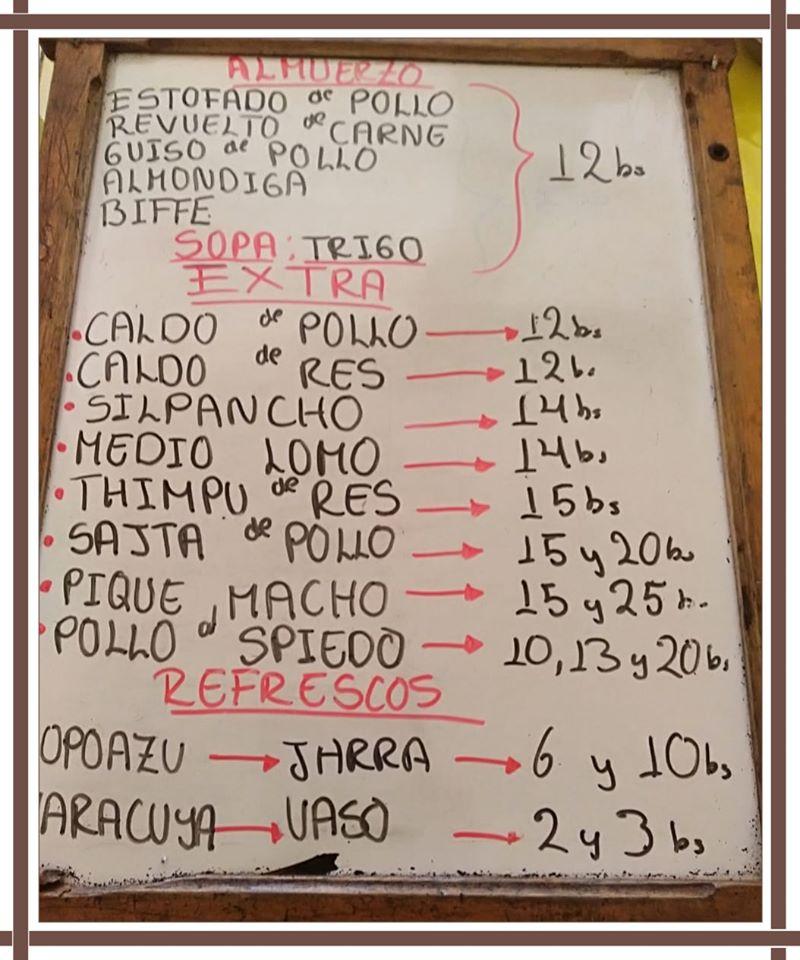 ALMUERZO
ESTOFADO de POLLO
REVUELTO de CARNE
GUISO de POLLO
ALMONDIGA
BIFFE
12bs
SOPA: TRIGO
EXTRA
.CALDO de POLLO → 12bs
.CALDO de RES → 12b.
• SILPANCHO → 14bs
• MEDIO LOMO → 14bs
• THIMPU de RES → 15bs
• SAJTA de POLLO → 15 y 20bs
• PIQUE MACHO → 15 y 25b.
• POLLO al SPIEDO → 10, 13 y 20bs
REFRESCOS
OPOAZU → JARRA → 6 y 10bs
ARACUYA → VASO → 2 y 3 bs